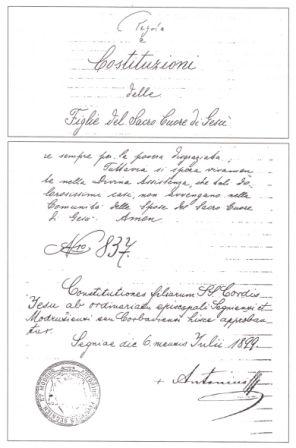 Regola
e
Costituzioni
delle
Figlie del Sacro Cuore di Gesù
re sempre per la povera disgraziata.
Tuttavia si spera vivamen
te nella Divina Assistenza, che tali do
lorosissimi casi, non avvengano nella
Comunità delle Spose del Sacro Cuore
di Gesù. Amen
Nro 837.
Constitutiones filiarum SS. Cordis
Jesu ab ordinariatu episcopali Segniensi et
Modrušiensi seu Corbaviensi hisce approban
tur.
Segniae die 6 mensis Julii 1899.
+ Antonius